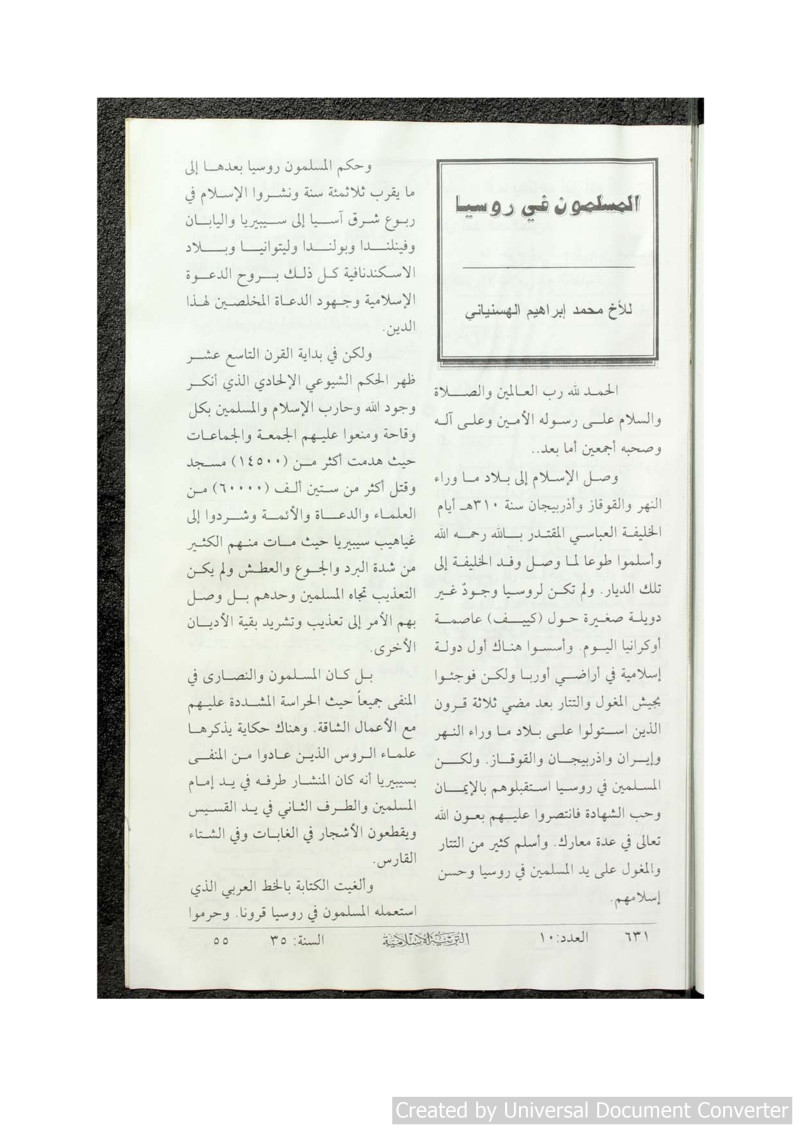 المسلمون في روسيا
للأخ محمد إبراهيم الهسنياني
الحمد لله رب العالمين والصلاة
والسلام على رسوله الأمين وعلى آله
وصحبه أجمعين أما بعد..
وصل الإسلام إلى بلاد ما وراء
النهر والقوقاز وأذربيجان سنة ٣١٠هـ أيام
الخليفة العباسي المقتدر بالله رحمه الله
وأسلموا طوعا لما وصل وفد الخليفة إلى
تلك الديار. ولم تكن لروسيا وجودٌ غير
دويلة صغيرة حول (كييف) عاصمة
أوكرانيا اليوم. وأسسوا هناك أول دولة
إسلامية في أراضي أوربا ولكن فوجئوا
بجيش المغول والتتار بعد مضي ثلاثة قرون
الذين استولوا على بلاد ما وراء النهر
وإيران واذربيجان والقوقاز. ولكن
المسلمين في روسيا استقبلوهم بالإيمان
وحب الشهادة فانتصروا عليهم بعون الله
تعالى في عدة معارك. وأسلم كثير من التتار
والمغول على يد المسلمين في روسيا وحسن
إسلامهم.
وحكم المسلمون روسيا بعدها إلى
ما يقرب ثلاثمئة سنة ونشروا الإسلام في
ربوع شرق آسيا إلى سيبيريا واليابان
وفينلندا وبولندا وليتوانيا وبلاد
الاسكندنافية كل ذلك بروح الدعوة
الإسلامية وجهود الدعاة المخلصين لهذا
الدين.
ولكن في بداية القرن التاسع عشر
ظهر الحكم الشيوعي الإلحادي الذي أنكر
وجود الله وحارب الإسلام والمسلمين بكل
وقاحة ومنعوا عليهم الجمعة والجماعات
حيث هدمت أكثر من (١٤٥٠٠) مسجد
وقتل أكثر من ستين ألف (٦٠٠٠٠) من
العلماء والدعاة والأئمة وشردوا إلى
غياهيب سيبيريا حيث مات منهم الكثير
من شدة البرد والجوع والعطش ولم يكن
التعذيب تجاه المسلمين وحدهم بل وصل
بهم الأمر إلى تعذيب وتشريد بقية الأديان
الأخرى.
بل كان المسلمون والنصارى في
المنفى جميعاً حيث الحراسة المشددة عليهم
مع الأعمال الشاقة. وهناك حكاية يذكرها
علماء الروس الذين عادوا من المنفى
بسيبيريا أنه كان المنشار طرفه في يد إمام
المسلمين والطرف الثاني في يد القسيس
ويقطعون الأشجار في الغابات وفي الشتاء
القارس.
وألغيت الكتابة بالخط العربي الذي
استعمله المسلمون في روسيا قرونا. وحرموا
٦٣١ العدد: ١٠ التربية الإسلامية السنة: ٣٥ ٥٥
Created by Universal Document Converter